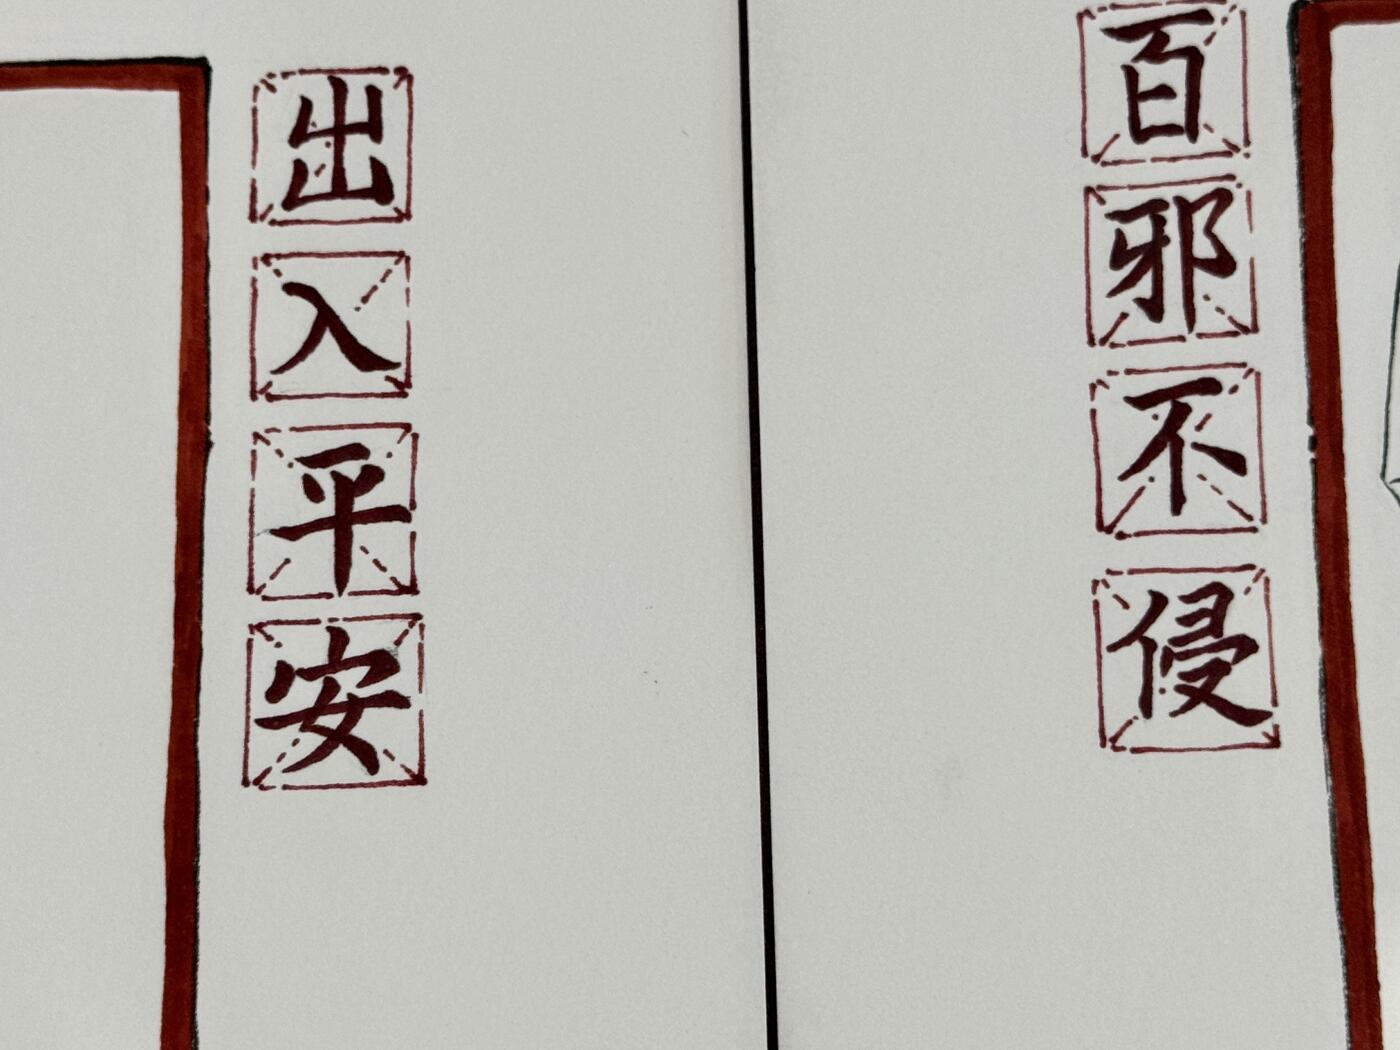 百邪不侵
出入平安